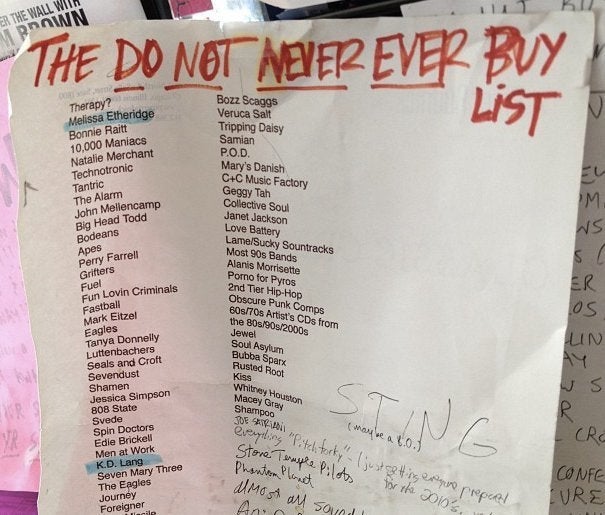 ER THE WALL WITH
M BROWN
THE DO NOT NEVER EVER BUY
LIST
Therapy?
Melissa Etheridge
Bonnie Raitt
10,000 Maniacs
Natalie Merchant
Technotronic
Tantric
The Alarm
John Mellencamp
Big Head Todd
Bodeans
Apes
Perry Farrell
Grifters
Fuel
Fun Lovin Criminals
Fastball
Mark Eitzel
Eagles
Tanya Donnelly
Luttenbachers
Seals and Croft
Sevendust
Shamen
Jessica Simpson
808 State
Svede
Spin Doctors
Edie Brickell
Men at Work
K.D. Lang
Seven Mary Three
The Eagles
Journey
Foreigner
Bozz Scaggs
Veruca Salt
Tripping Daisy
Samian
P.O.D.
Mary's Danish
C+C Music Factory
Geggy Tah
Collective Soul
Janet Jackson
Love Battery
Lame/Sucky Sountracks
Most 90s Bands
Alanis Morrisette
Porno for Pyros
2nd Tier Hip-Hop
Obscure Punk Comps
60s/70s Artist's CDs from
the 80s/90s/2000s
Jewel
Soul Asylum
Bubba Sparx
Rusted Root
Kiss
Whitney Houston
Macey Gray
Shampoo
JOE SATRIANI
everything "Pitchforky" (just getting everyone prepared
for the 2010's,
Stone Temple Pilots
Phantom Planet
almost all sound
STING
(maybe a B.O.)